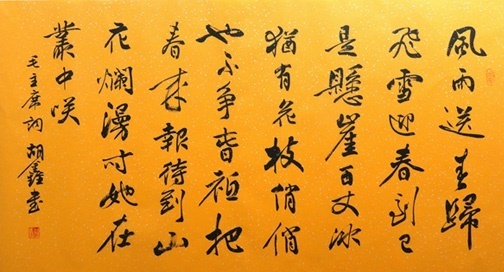 風雨送春歸
飛雪迎春到已
是懸崖百丈冰
猶有花枝俏俏
也不争春祗把
春來報待到山
花爛漫时她在
叢中咲
毛主席詞 胡鑫書